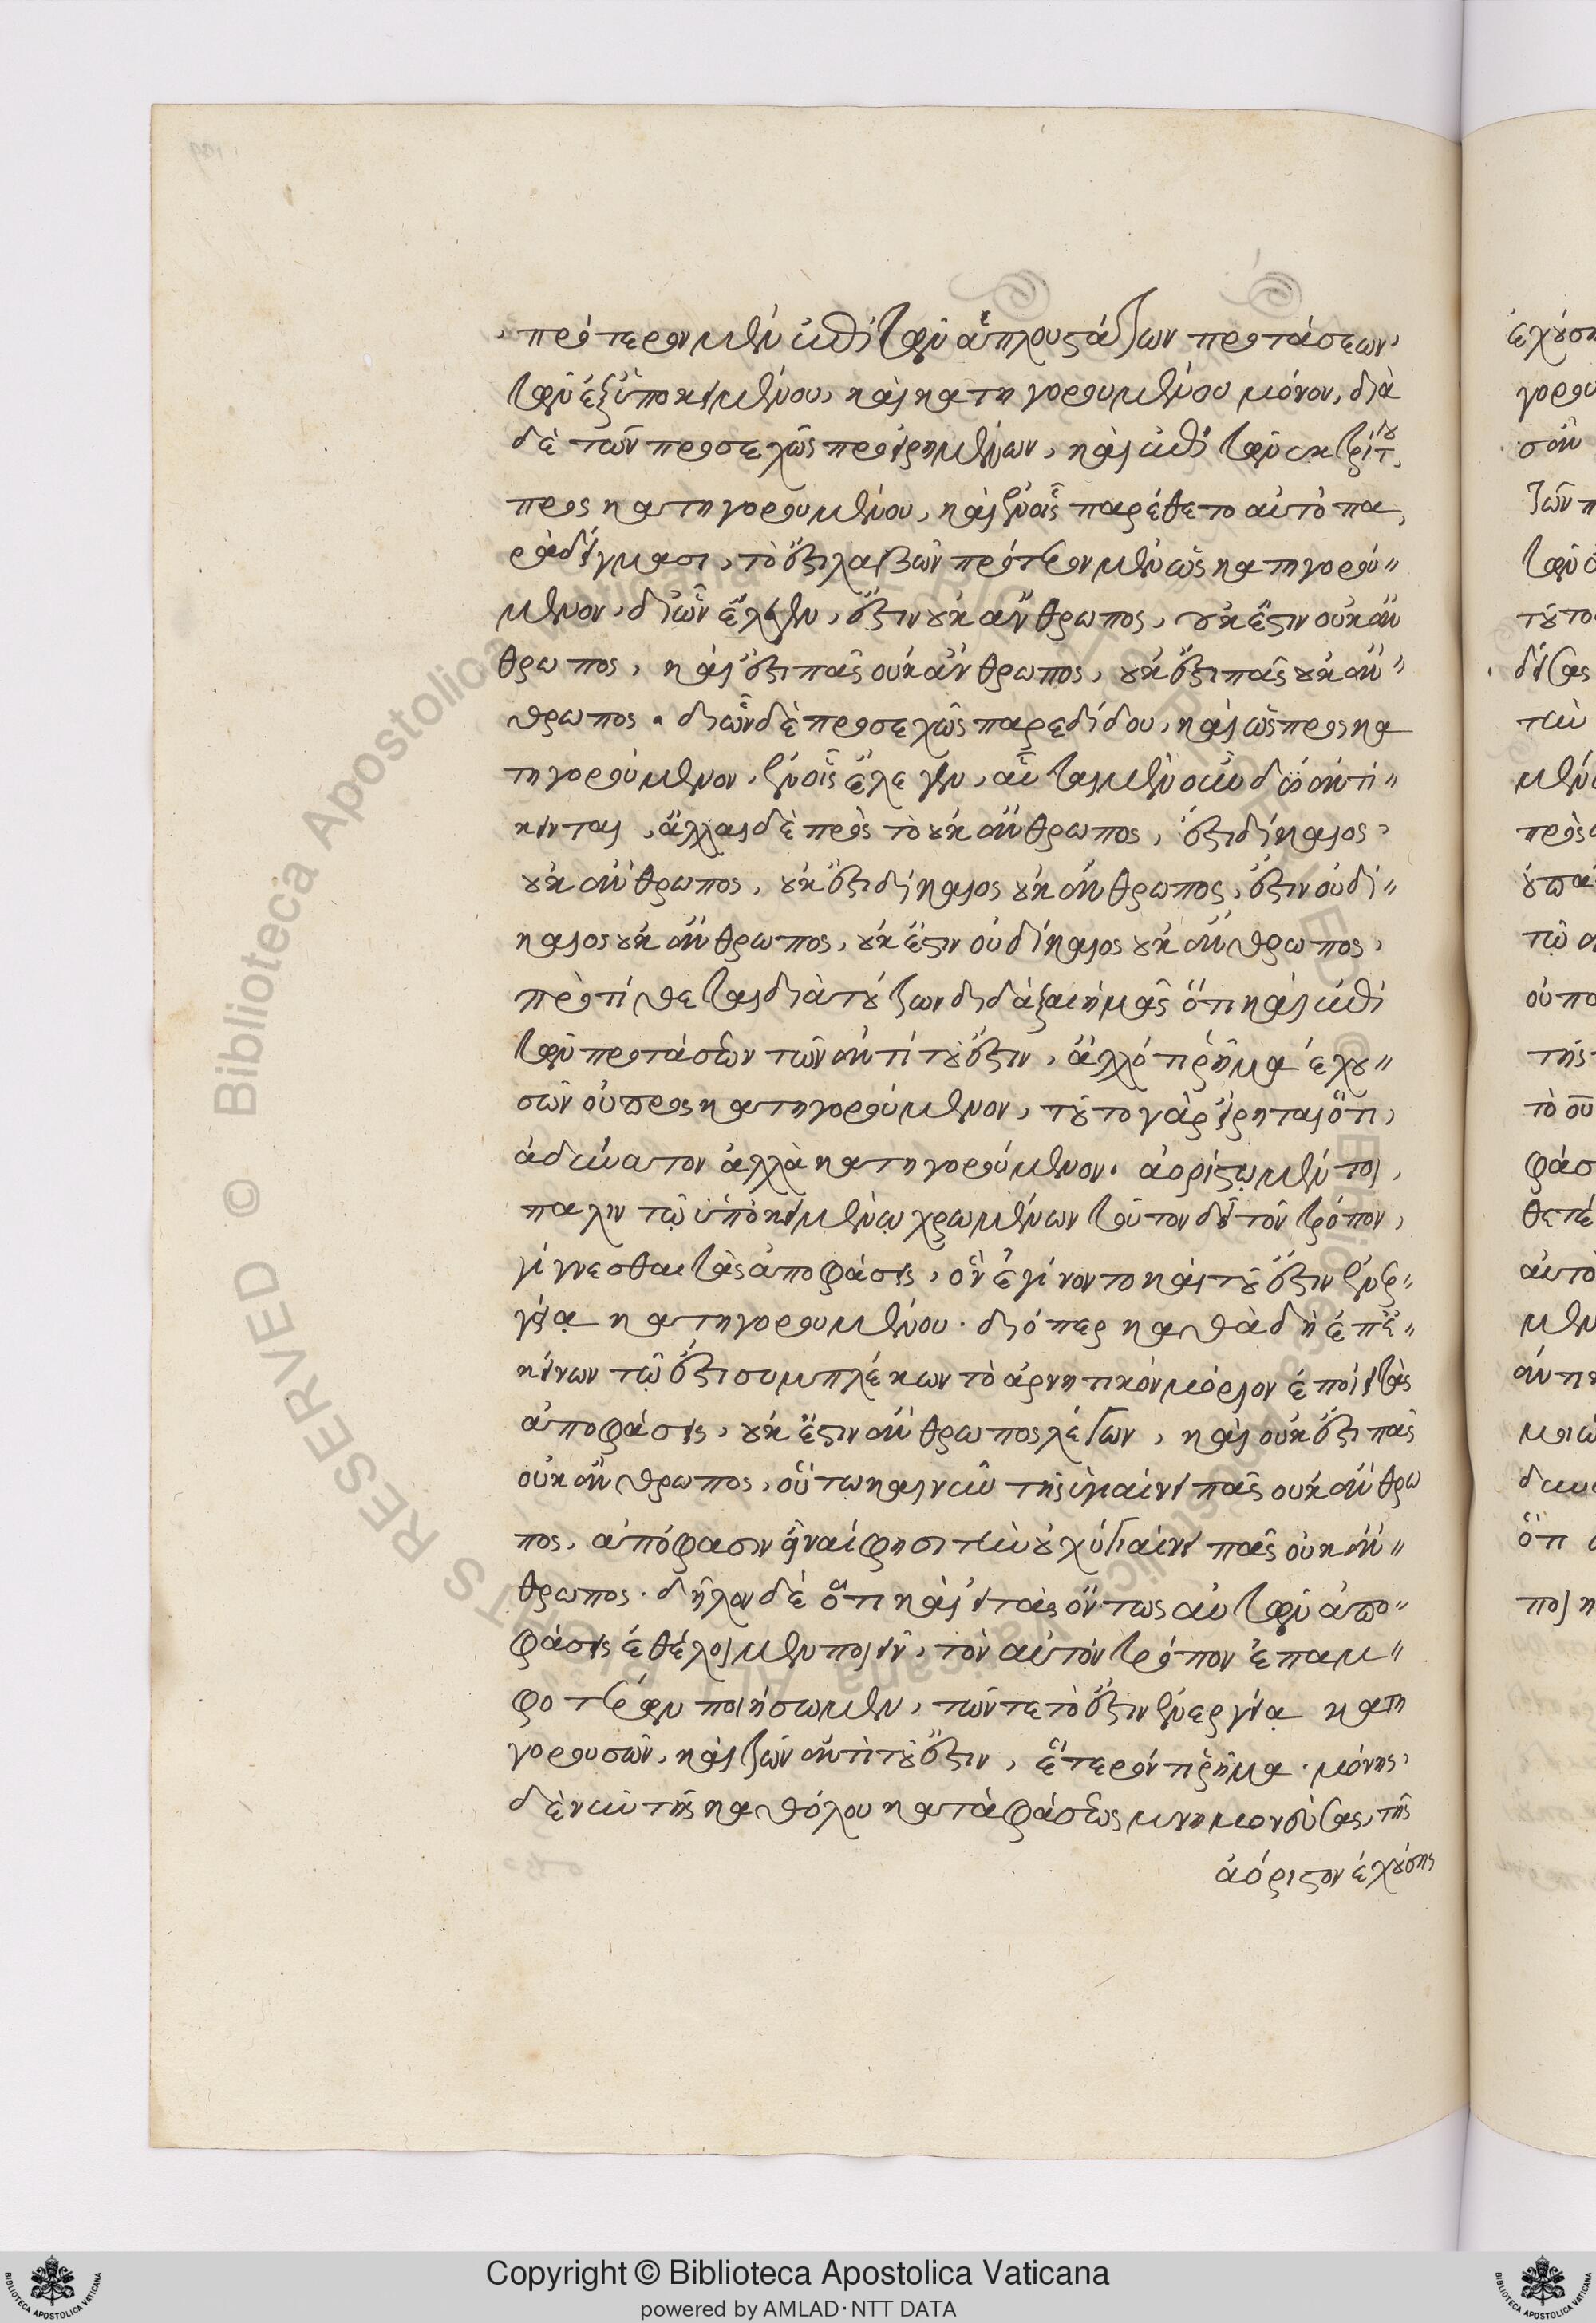 πρότερον μὲν ἐπὶ τῶν ἁπλουστάτων προτάσεων,
τῶν ἐξ ὑποκειμένου, καὶ κατηγορουμένου μόνον, διὰ
δὲ τῶν προσεχῶς προειρημένων, καὶ ἐπὶ τῶν ἐκ τρίτου
προς κατηγορουμένου, καὶ ἐν οἷς παρέθετο αὐτὸ πα
ραδείγμασι, τὸ ἔστι λαβὼν πρότερον μὲν ὡς κατηγορού
μενον, δι' ὧν ἔλεγεν, ἔστιν οὐκ ἄνθρωπος, οὐκ ἔστιν οὐκ ἄν
θρωπος, καὶ ἔστι πᾶς οὐκ ἄνθρωπος, οὐκ ἔστι πᾶς οὐκ ἄν
θρωπος. δι' ὧν δὲ προσεχῶς παρεδίδου, καὶ ὡς προς κα
τηγορούμενον, ἐν οἷς ἔλεγεν, αὗται μὲν οὖν δύο ἀντί
κεινται, ἄλλαι δὲ πρὸς τὸ οὐκ ἄνθρωπος, ἔστι δίκαιος
οὐκ ἄνθρωπος, οὐκ ἔστι δίκαιος οὐκ ἄνθρωπος, ἔστιν οὐ δί
καιος οὐκ ἄνθρωπος, οὐκ ἔστιν οὐ δίκαιος οὐκ ἄνθρωπος,
προτίθεται διὰ τούτων διδάξαι ἡμᾶς ὅτι καὶ ἐπὶ
τῶν προτάσεων τῶν ἀντὶ τοῦ ἔστιν, ἄλλό τι ῥῆμα ἐχου
σῶν οὐ προς κατηγορούμενον, τοῦτο γὰρ εἴρηται ὅτι
ἀδύνατον ἀλλὰ κατηγορούμενον. ἀορίστῳ μέντοι
παλιν τῷ ὑποκειμένῳ χρωμένων τοῦτον δεῖ τὸν τρόπον,
γίγνεσθαι τὰς ἀποφάσεις, ὃν ἐγίνοντο καὶ τοῦ ἔστιν ἐνερ
γείᾳ κατηγορουμένου. διόπερ καθὰ δὴ ἐπ' ἐ
κείνων τῷ ἔστι συμπλέκων τὸ ἀρνητικὸν μόριον ἐποίει τὰς
ἀποφάσεις, οὐκ ἔστιν ἄνθρωπος λέγων, καὶ οὐκ ἔστι πᾶς
οὐκ ἄνθρωπος, οὕτω καὶ νῦν τῆς ὑγιαίνει πᾶς οὐκ ἄνθρω
πος, ἀπόφασιν εἶναί φησι τὴν οὐχ ὑγιαίνει πᾶς οὐκ ἄν
θρωπος. δῆλον δὲ ὅτι καὶ εἰ τὰς ὄντως αὐτῶν ἀπο
φάσεις ἐθέλοιμεν ποιεῖν, τὸν αὐτὸν τρόπον ἐπ' ἀμ
φοτέρων ποιήσωμεν, τῶν τε τὸ ἔστιν ἐνεργείᾳ κατη
γορουσῶν, καὶ τῶν ἀντὶ τοῦ ἔστιν, ἕτερόν τι ῥῆμα. μόνης
δὲ νῦν τῆς καθόλου καταφάσεως μνημονεύσας, τῆς
ἀόριστον ἐχούσης